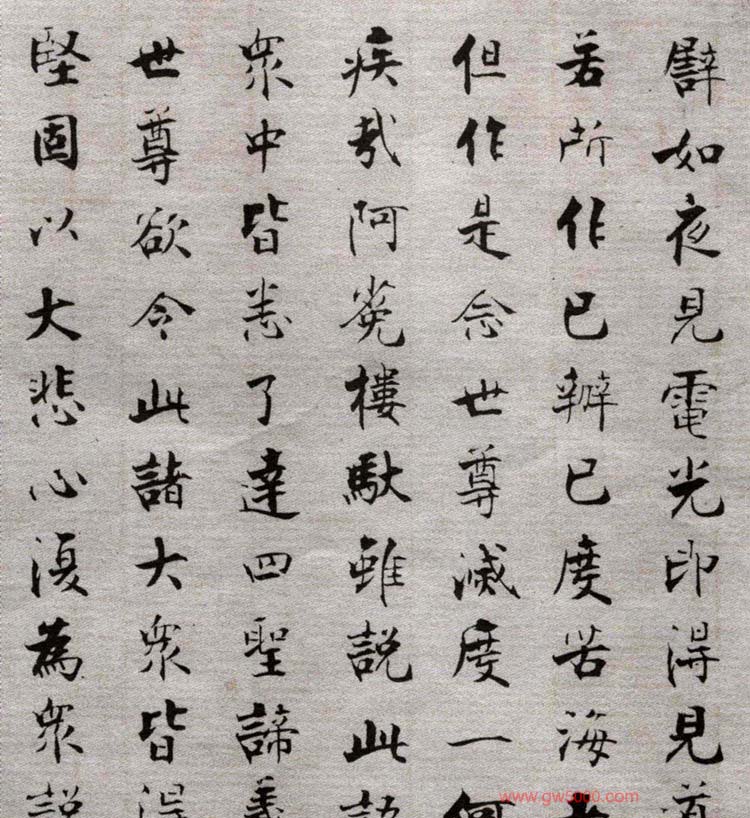 譬如夜見電光即得見道
若所作已辦已度苦海
但作是念世尊滅度一何
疾哉阿㝹樓馱雖說此語
眾中皆悉了達四聖諦義
世尊欲令此諸大眾皆得
堅固以大悲心復為眾說
www.gw5000.com